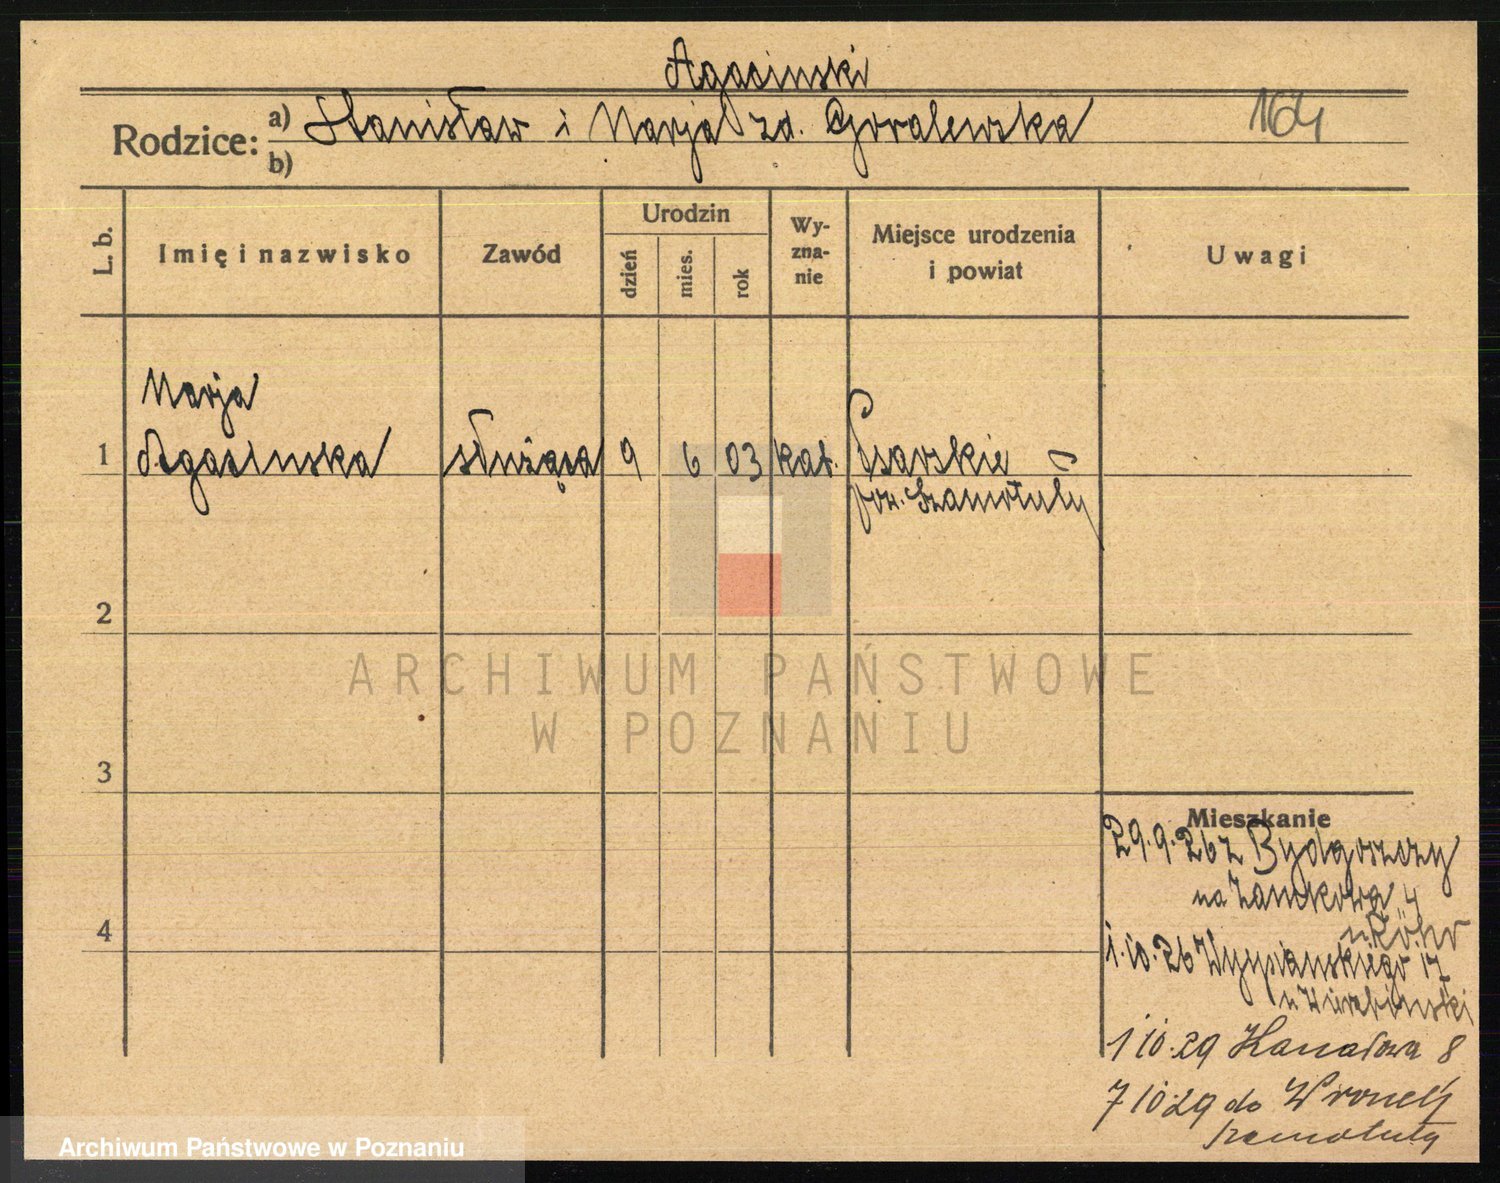 Agacinski
Rodzice: a) Stanisław i Marja zd. Goralewska 164
b)
L. b. Imię i nazwisko Zawód Urodzin dzień mies. rok Wy-zna-nie Miejsce urodzenia i powiat Uwagi
Marja
1 Agacinska służąca 9 6 03 kat. Psarskie
pow. Szamotuły
2
ARCHIWUM PAŃSTWOWE
W POZNANIU
3
Mieszkanie
29.9.26 z Bydgoszczy
na Zamkowa 4
4
u Röhr
1.10.26 Wyspianskiego 17
u
1 10.29 Kanałowa 8
7 10 29 do Wronek
Szamotuły
Archiwum Państwowe w Poznaniu